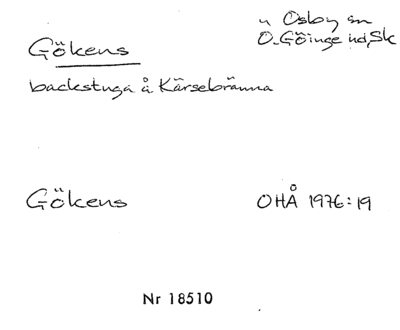 Gökens
n Osby sn
Ö. Göinge hd, Sk
backstuga å Kärsebränna
Gökens
OHÅ 1976:19
Nr 18510